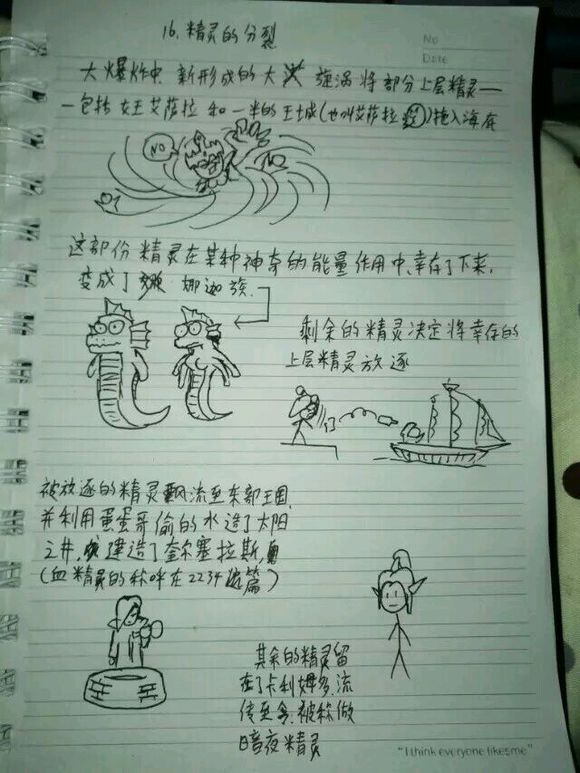 16. 精灵的分裂
No
Date
大爆炸中, 新形成的大 漩涡将部分上层精灵—
—包括女王艾萨拉和一半的王城(也叫艾萨拉)拖入海底
NO
这部份精灵在某种神奇的能量作用中幸存了下来,
变成了 娜迦族.
剩余的精灵决定将幸存的
上层精灵放逐
被放逐的精灵飘流至东部王国,
并利用蛋蛋哥偷的水造了太阳
之井, 建造了奎尔塞拉斯,
(血精灵的称呼在2234 篇)
其余的精灵留
在了卡利姆多, 流
传至今, 被称做
暗夜精灵
"I think everyone likes me"